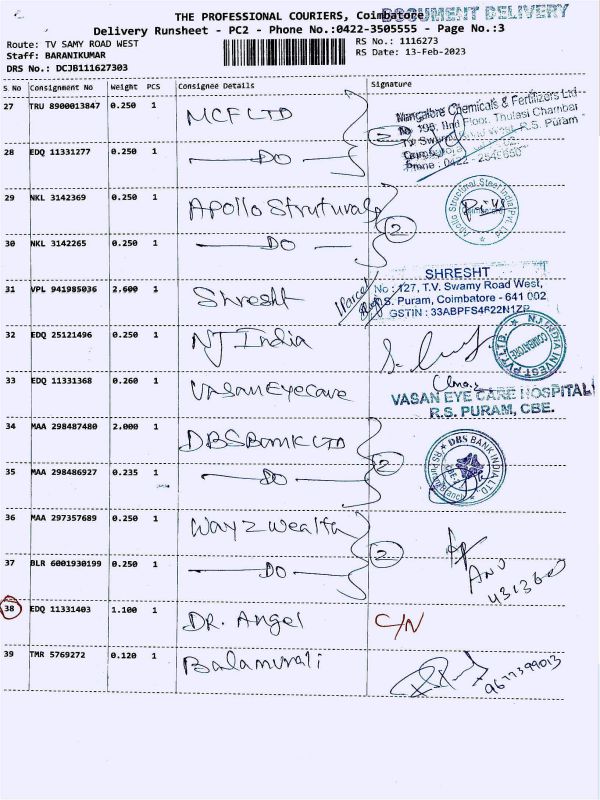 THE PROFESSIONAL COURIERS, Coimbatore
DOCUMENT DELIVERY
Delivery Runsheet - PC2 - Phone No.:0422-3505555 - Page No.:3
Route: TV SAMY ROAD WEST
RS No.: 1116273
Staff: BARANIKUMAR
RS Date: 13-Feb-2023
DRS No.: DCJB111627303
S No Consignment No Weight PCS Consignee Details Signature
27 TRU 8900013847 0.250 1 MCF LTD
Mangalore Chemicals & Fertilizers Ltd
No 198, IInd Floor, Thulasi Chambar
R.S. Puram
2
28 EDQ 11331277 0.250 1 DO
29 NKL 3142369 0.250 1 Apollo Struturals
2
Apollo Structural Steel India Pvt. Ltd.
30 NKL 3142265 0.250 1 DO
31 VPL 941985036 2.600 1 Shresht
SHRESHT
No : 127, T.V. Swamy Road West,
R.S. Puram, Coimbatore - 641 002
GSTIN : 33ABPFS4622N1ZP
32 EDQ 25121496 0.250 1 NJ India
NJ INDIA INVEST PVT LTD.
COIMBATORE
33 EDQ 11331368 0.260 1 VASAN Eye Care
VASAN EYE CARE HOSPITAL
R.S. PURAM, CBE.
34 MAA 298487480 2.000 1 DBS Bank LTD
2
DBS BANK INDIA LTD
35 MAA 298486927 0.235 1 DO
36 MAA 297357689 0.250 1 Way 2 wealth
2
37 BLR 6001930199 0.250 1 DO
ANU
38 EDQ 11331403 1.100 1 DR. Angel C/N
39 TMR 5769272 0.120 1 Balamurali
9677399013